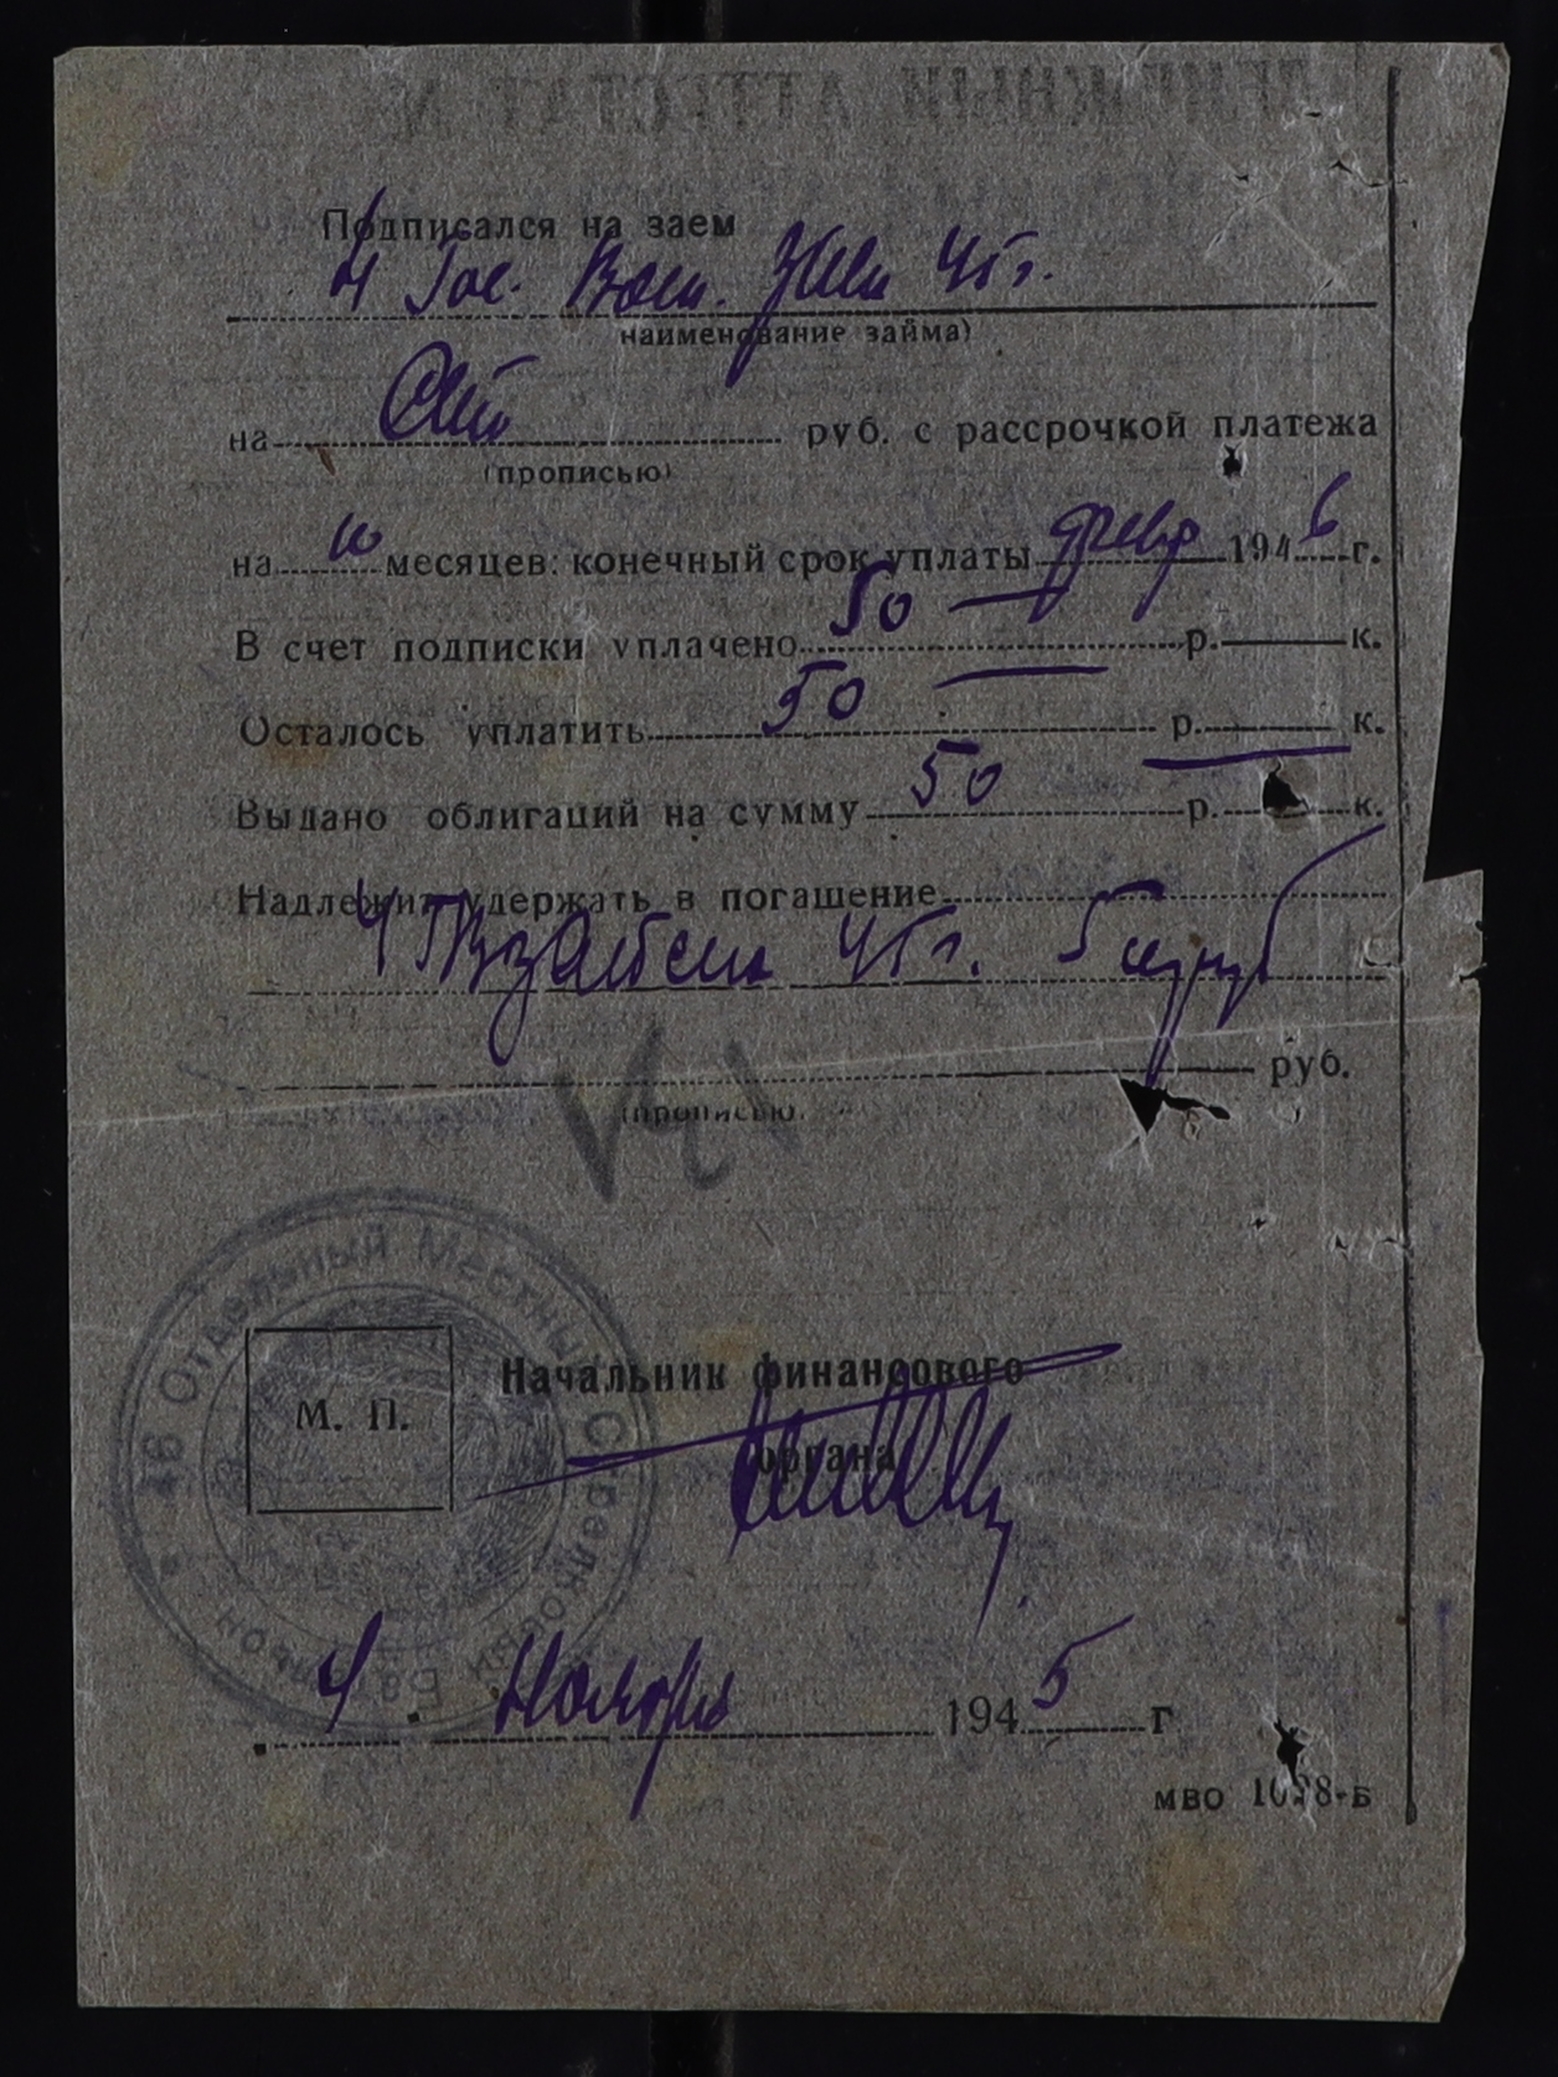 ДЕНЕЖНЫЙ АТТЕСТАТ №
Подписался на заем
4 Гос. Воен. Заем 45 г.
наименование займа)
на Сто руб. с рассрочкой платежа
(прописью)
на 10 месяцев: конечный срок уплаты февр 1946 г.
В счет подписки уплачено 50 — р. — к.
Осталось уплатить 50 — р. — к.
Выдано облигаций на сумму 50 р. — к.
Надлежит удержать в погашение
45 г.
руб.
(прописью)
46 Отдельный Местный Стрелковый Батальон
М. П.
Начальник финансового
органа
4 Ноября 1945 г
МВО 1028-Б